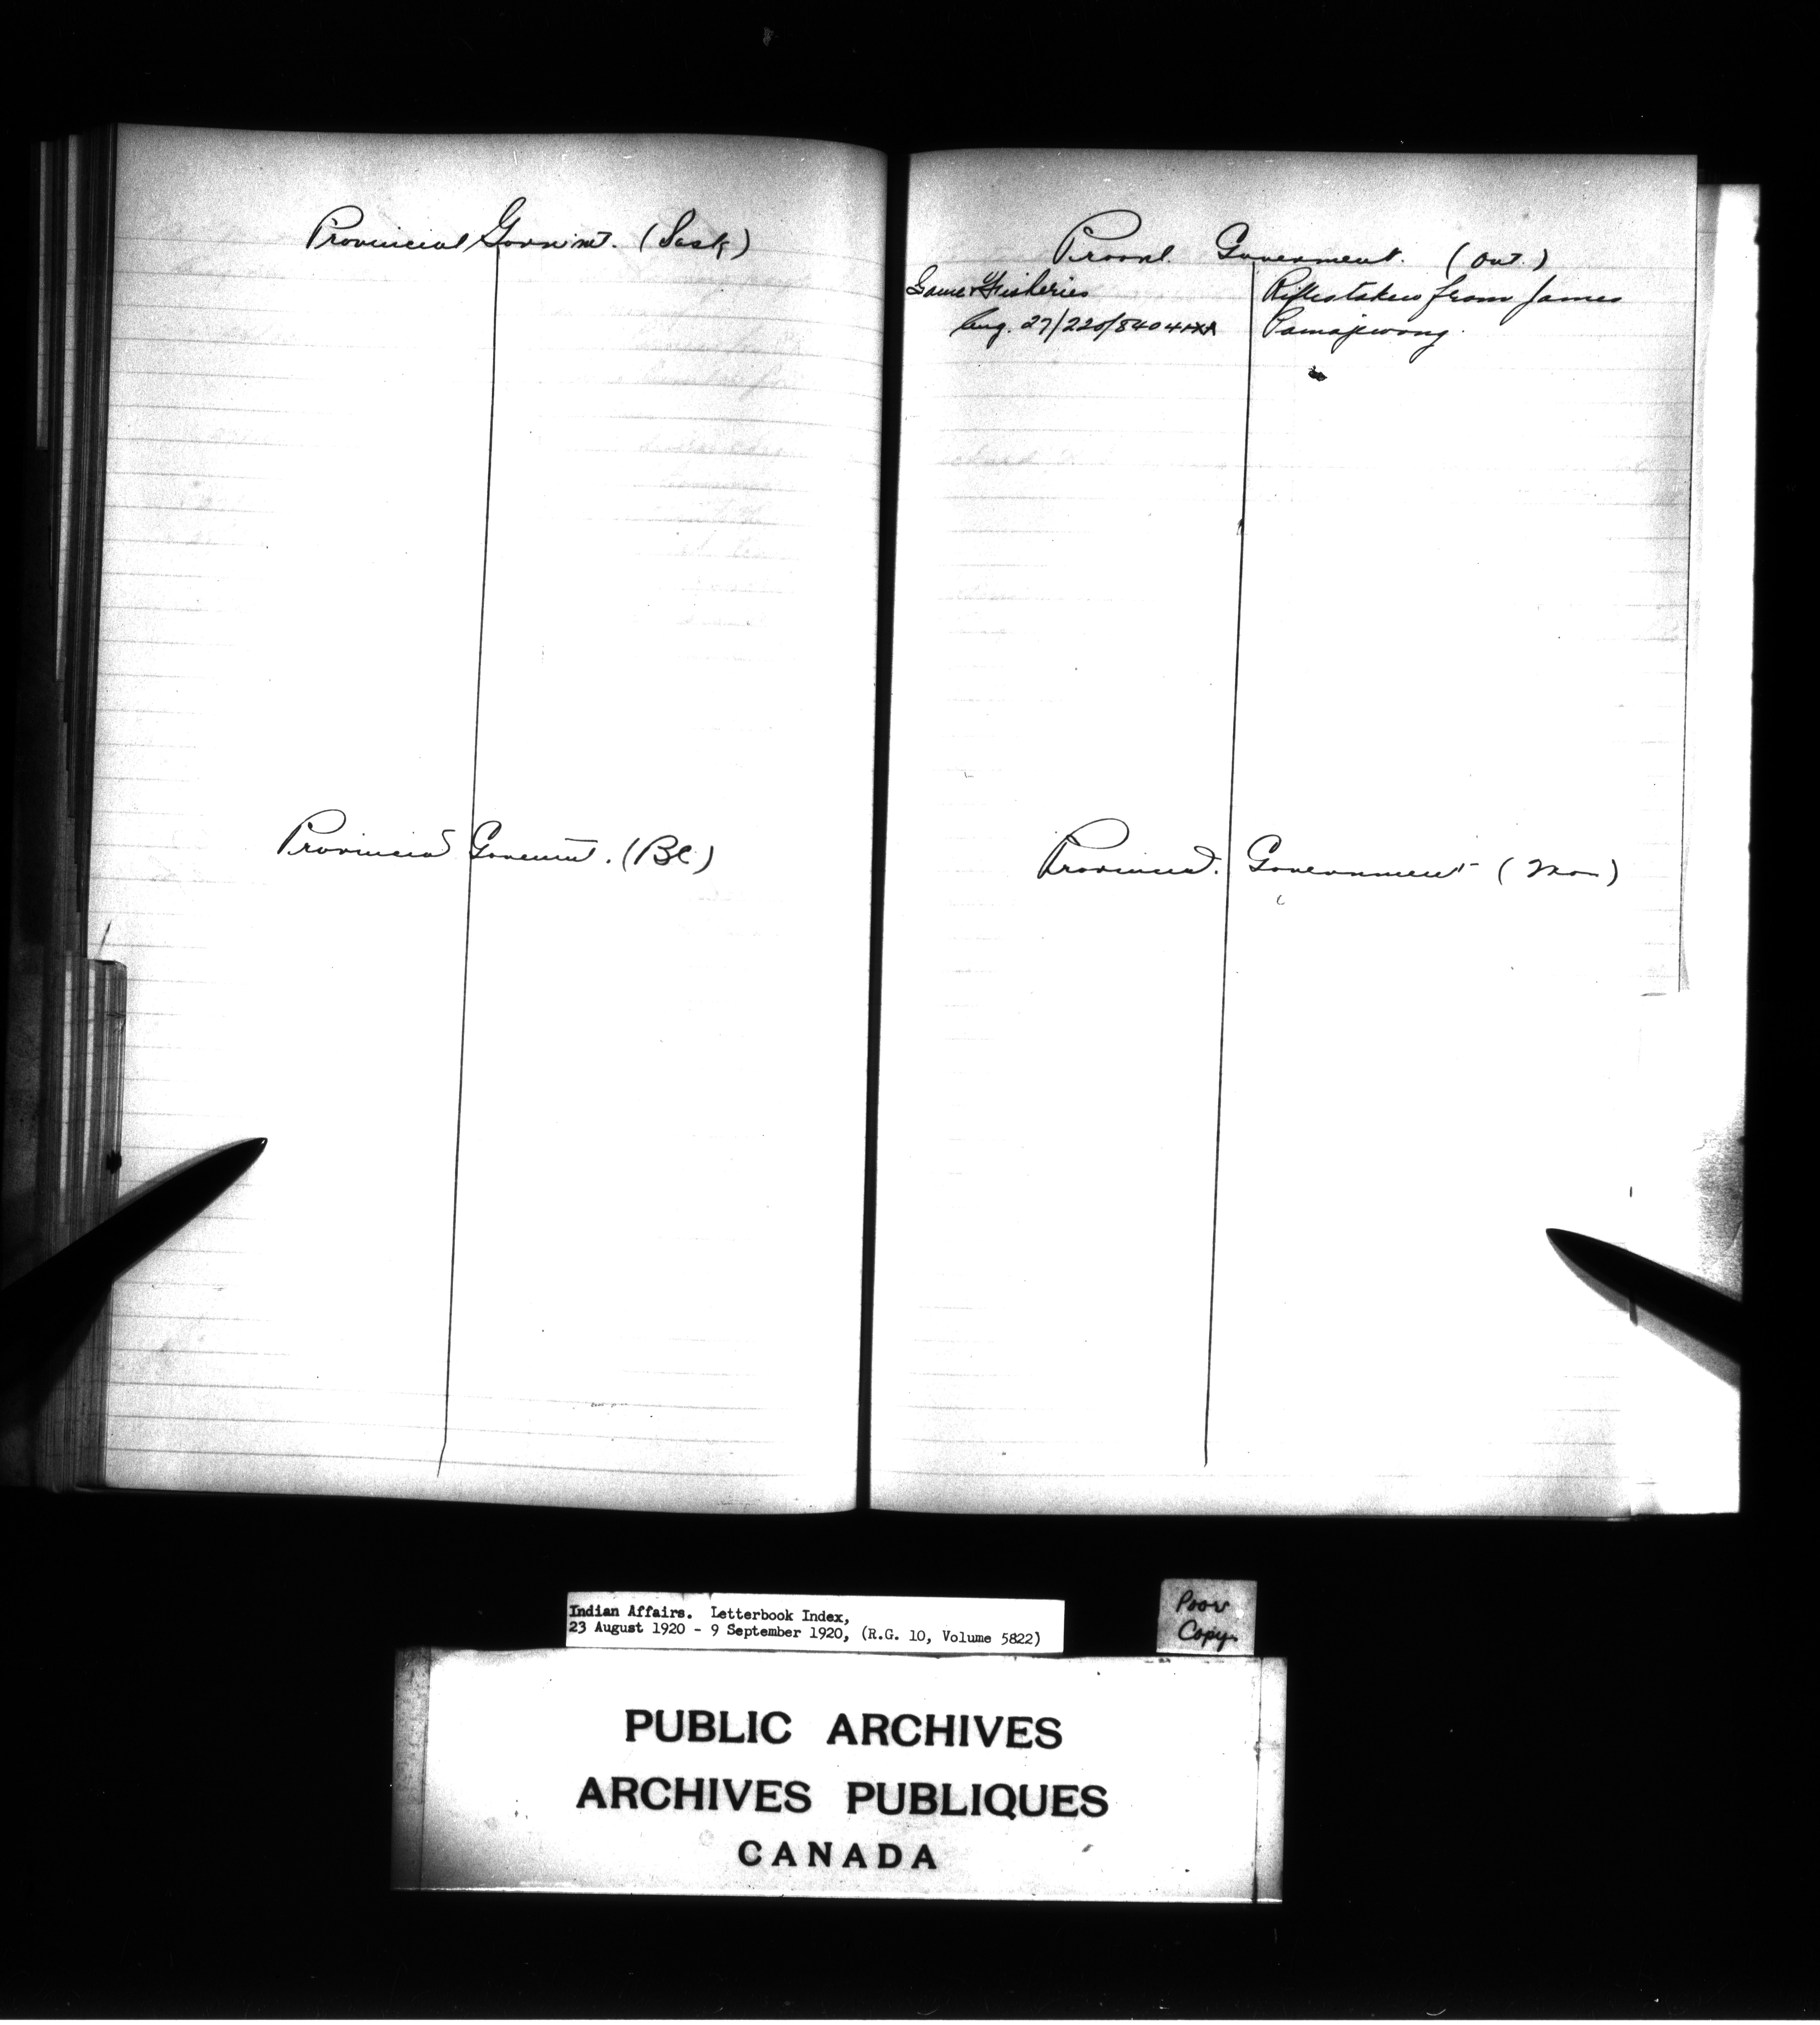 Provincial Govnm't. (Sask)
Provincial Governmt. (BC)
Provnl. Government. (Ont.)
Game & Fisheries
Rifles taken from James
Aug. 27/220/8404
Pamajewong.
Provincial. Government (Man)
Indian Affairs. Letterbook Index,
23 August 1920 - 9 September 1920, (R.G. 10, Volume 5822)
Poor
Copy
PUBLIC ARCHIVES
ARCHIVES PUBLIQUES
CANADA